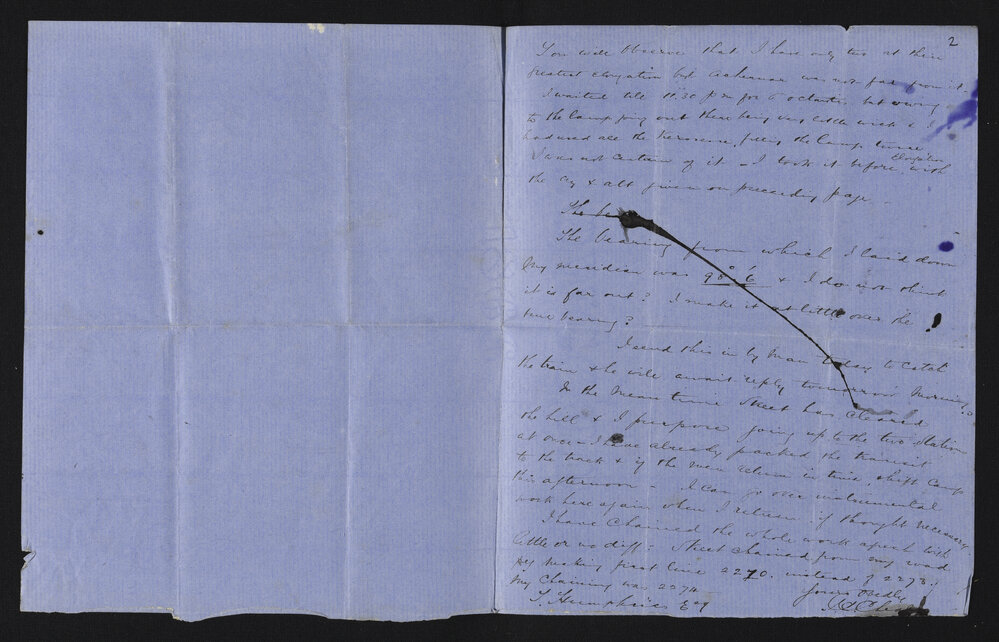 2
You will observe that I have only two at their
greatest elongation but Achernar was not far from it.
I waited till 11.30 pm for Octantis but owing
to the lamp going out there being very little wick & I
had used all the kerosene, filling the lamp twice
I was not certain of it - I took it before Elongation with
the az & alt given on preceeding page -
The be
The bearing from which I laid down
my meridian was 98° 6' & I do not think
it is far out? I make it a little over the
true bearing?
I send this in by man today to catch
the train & he will await reply tomorrow morning.
In the meantime Skeet has cleared
the hill & I purpose going up to the two stations
at once - I have already packed the transit
to the track & if the men return in time shift camp
this afternoon - I can go over instrumental
work here again when I return if thought necessary.
I have chained the whole work afresh with
little or no diff: Skeet chained from my road
peg making first line 2270. instead of 2273.
My chaining was 2274
Yours obedly
T. Humphries Esq